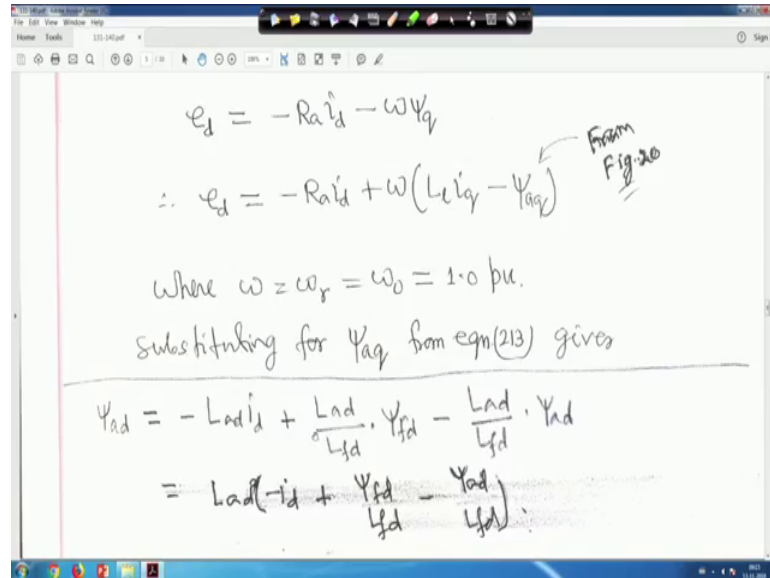 131-140.pdf - Adobe Acrobat Reader DC
File Edit View Window Help
Home Tools 131-140.pdf × Sign
e_d = -Ra i_d - ωΨ_q
∴ e_d = -Ra i_d + ω(L_l i_q - Ψ_aq)
From
Fig.20
where ω = ω_r = ω_0 = 1.0 pu.
substituting for Ψ_aq from eqn(213) gives
Ψ_ad = - L_ad i_d + L_ad/L_fd . Ψ_fd - L_ad/L_fd . Ψ_ad
= L_ad(-i_d + Ψ_fd/L_fd - Ψ_ad/L_fd).